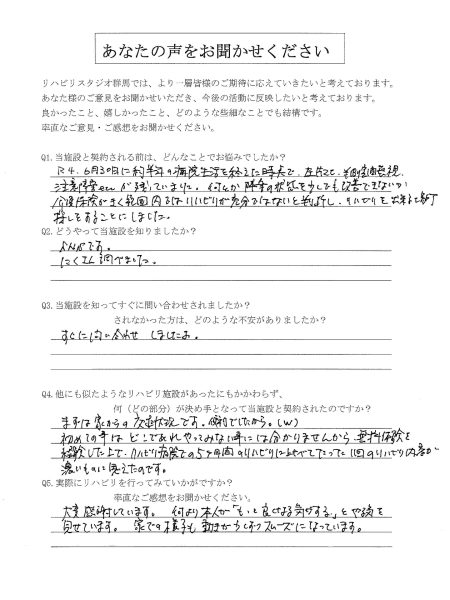 あなたの声をお聞かせください
リハビリスタジオ群馬では、より一層皆様のご期待に応えていきたいと考えております。
あなた様のご意見をお聞かせいただき、今後の活動に反映したいと考えております。
良かったこと、嬉しかったこと、どのような些細なことでも結構です。
率直なご意見・ご感想をお聞かせください。
Q1.当施設と契約される前は、どんなことでお悩みでしたか?
R4.6月30日に約半年の病院生活を終えた時点で、左片マヒ、半側空間無視、
注意障害etcが残っていました。何とか障害の状態を少しでも改善できないか
介護保険がきく範囲内ではリハビリが充分ではないと判断し、リハビリを
探しをすることにしました。
Q2.どうやって当施設を知りましたか?
です。
たくさん調べました。
Q3.当施設を知ってすぐに問い合わせされましたか?
されなかった方は、どのような不安がありましたか?
すぐに問い合わせしましたよ。
Q4.他にも似たようなリハビリ施設があったにもかかわらず、
何(どの部分)が決め手となって当施設と契約されたのですか?
まずは家からの です。便利でしたから。(W)
初めての事はどこであれやってみない事には分かりませんから 無料体験を
経験した上で、リハビリ病院での5ヶ月間のリハビリに比べてたった1回のリハビリ内容が
濃いものに思えたのです。
Q5.実際にリハビリを行ってみていかがですか?
率直なご感想をお聞かせください。
大変感謝しています。何より本人が「もっと良くなる気がする」とやる気を
見せています。家での様子も動きが少しずつスムーズになっています。